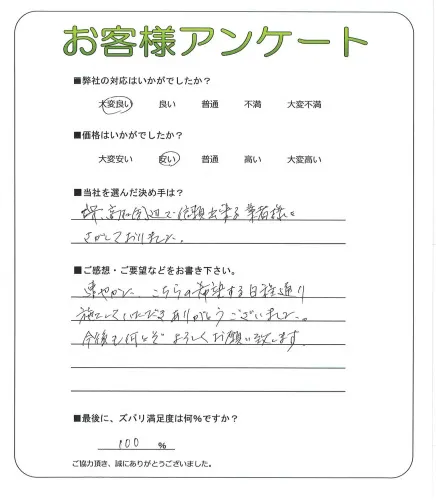 お客様アンケート
■弊社の対応はいかがでしたか?
大変良い 良い 普通 不満 大変不満
■価格はいかがでしたか?
大変安い 安い 普通 高い 大変高い
■当社を選んだ決め手は?
周辺で信頼出来る業者様を
さがしておりました。
■ご感想・ご要望などをお書き下さい。
速やかに、こちらの希望する日程通り
施工していただきありがとうございました。
今後も何とぞよろしくお願い致します
■最後に、ズバリ満足度は何%ですか?
100 %
ご協力頂き、誠にありがとうございました。